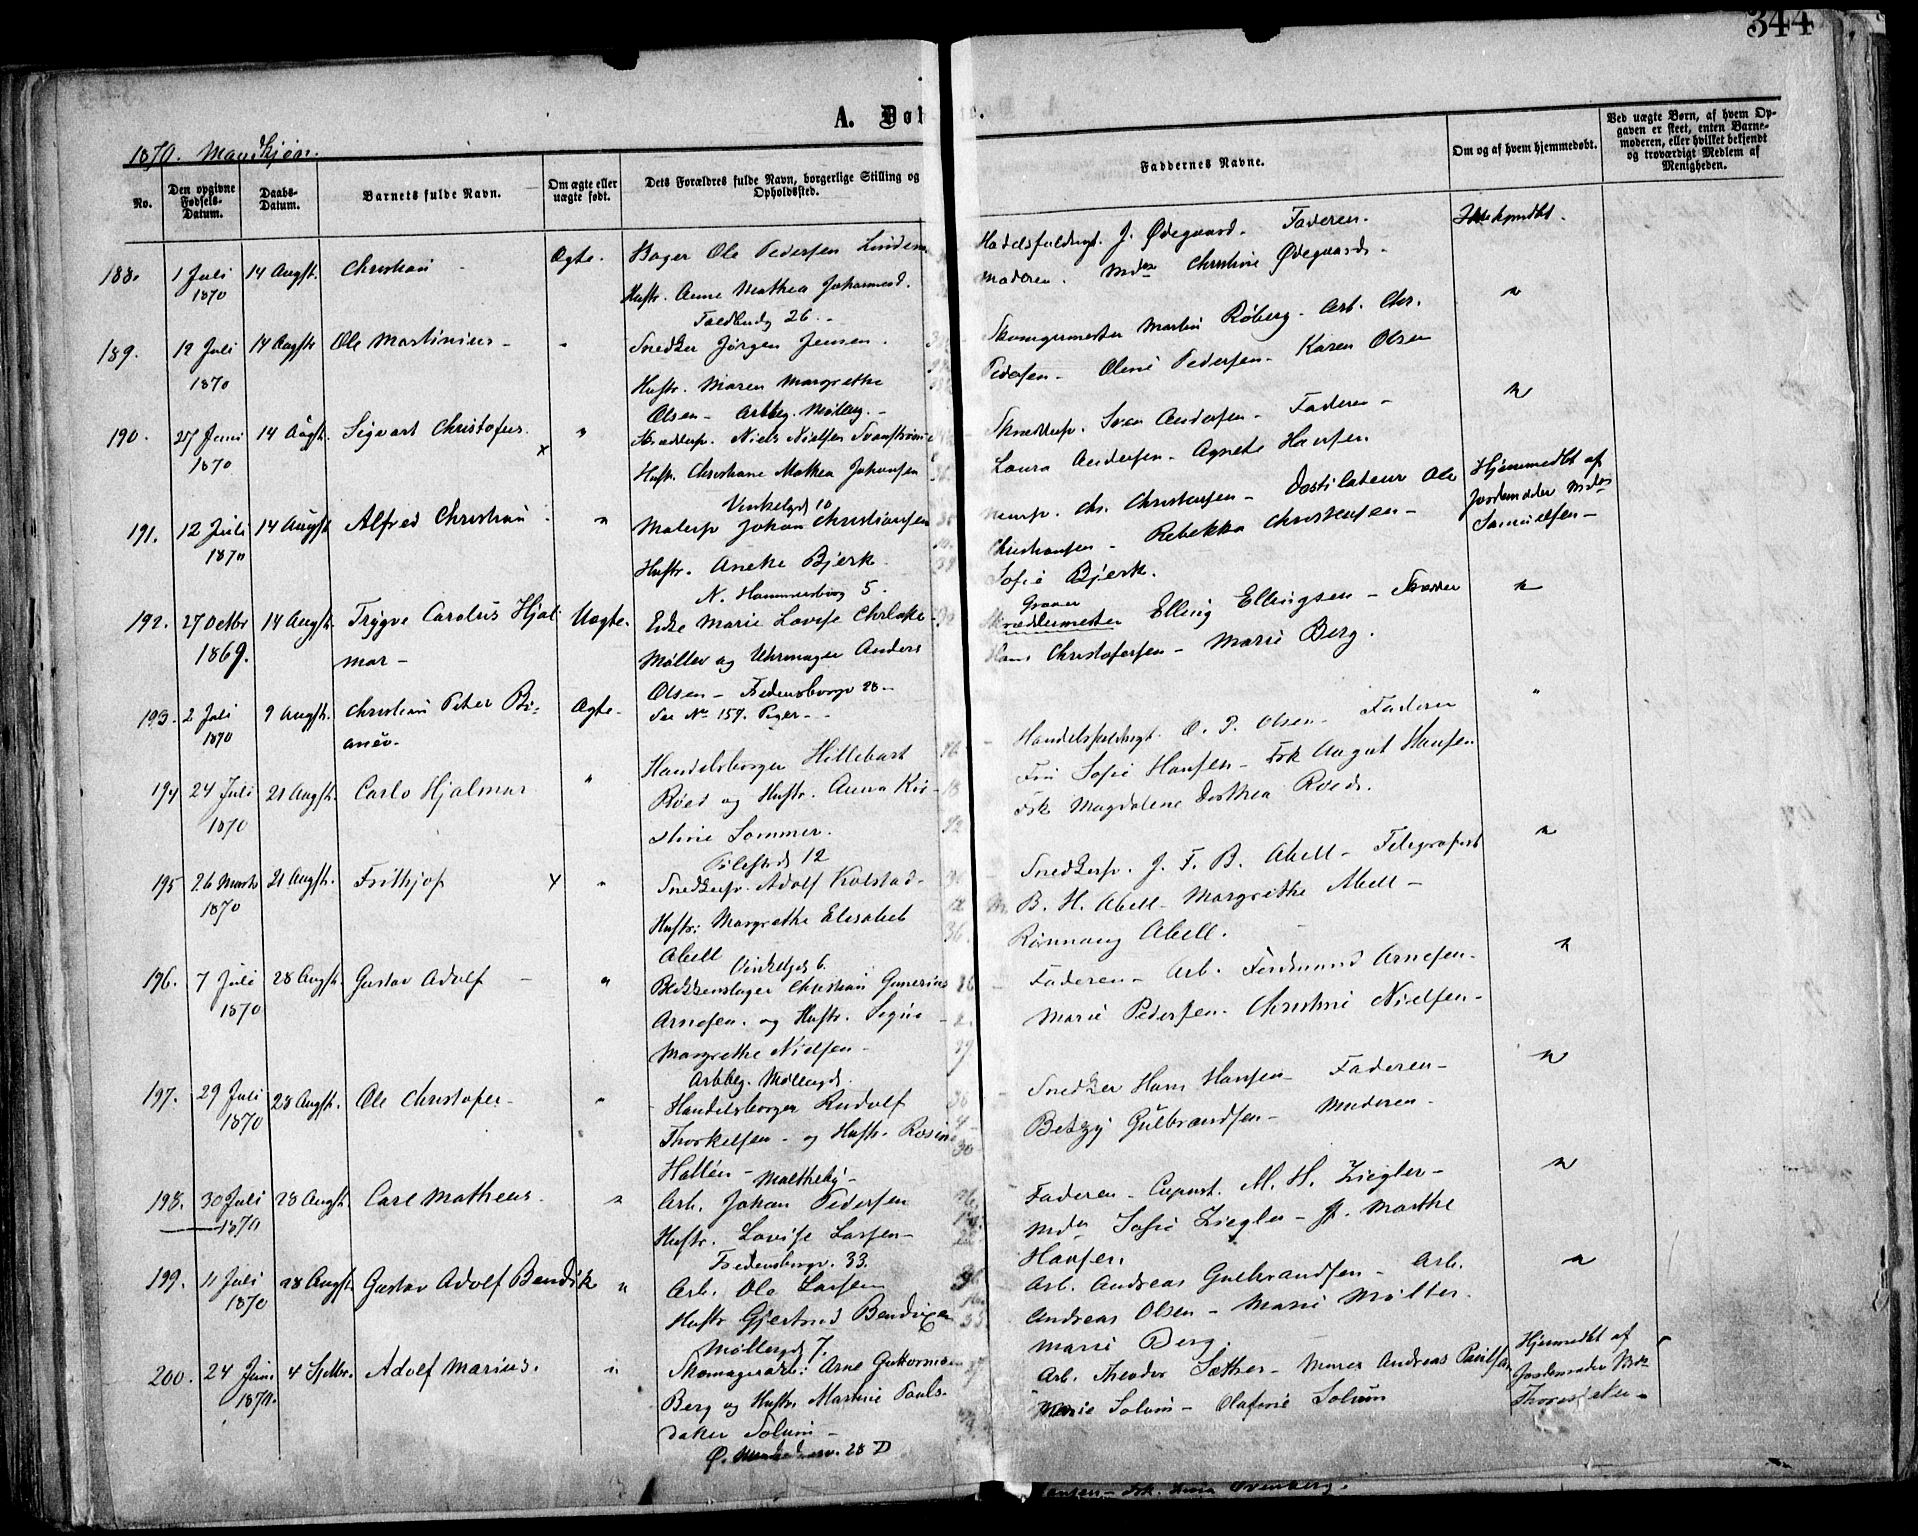 344
A. Døb
1870. Mandkjøn.
No.
Den opgivne Fødsels-Datum.
Daabs-Datum.
Barnets fulde Navn.
Om ægte eller uægte født.
Dets Forældres fulde Navn, borgerlige Stilling og Opholdssted.
Faddernes Navne.
Om og af hvem hjemmedøbt.
Ved uægte Børn, af hvem Opgaven er skeet, enten Barnemoderen, eller hvilket bekjendt og troværdigt Medlem af Menigheden.
188. 1 Juli 14 Augst. Christian Ægte. Bager Ole Pedersen J. Ødegaard. Faderen.
1870 Hustr. Anne Mathea Moderen. Christine Ødegaard
Toldbudg 26.
189. 12 Juli 14 Augst Ole Martinius " Snedker Jørgen Jensen. Skomagermester Martin Røberg. Arb. Chr. "
1870 Hustr. Maren Margrethe Pedersen - Oline Pedersen - Karen Olsen
Olsen - Arbbg. Møllerg. -
190. 27 Juni 14 Augst. Sigvart Christofer. x " Skrædersv. Niels Nielsen Svend Andersen - Faderen - "
1870 Hustr. Christiane Mathea Johansen Laura Andersen - Agnete Hansen.
Vinkelgd 10
191. 12 Juli 14 Augst Alfred Christian " Malersv Johan Christiansen Chr. Christensen - Destilateur Ole Hjemmedbt af
1870 Hustr. Aneke Bjerk. Christiansen - Rebekka Christensen - Jordemoder Mda
N. Hammersborg 5. Sofie Bjerk. Samuelsen -
192. 27 Octbr 14 Augst. Trygve Carolus Hjal- Uægte. Enke Marie Lovise Møller og Uhrmager Anders Graver
1869. mar - Skræddermester Elling Ellingsen - "
Olsen - Fredensborgv 28 - Hans Christofersen - Marie Berg.
See No 159. Piger -
193. 2 Juli 9 Augst. Christian Peter Bi- Ægte - "
1870 anev.
194 24 Juli 21 Augst. Carlo Hjalmar " Handelsborger Hillebart Handelsfuldmgt. O. P. Olsen - Faderen
1870 Røed og Hustr. Anna Kir- Fru Sofie Hansen - Frk August Hansen
stine Sommer. Frk Magdalene Dorthea Røed.
Pilestrd 12
195 26 Marts 21 Augst. Frithjof x " Snedkersv. Adolf Kolstad. Snedkersv. J. F. B. Abell - Telegrafist "
1870 Hustr: Margrethe Elisabet B. H. Abell - Margrethe Abell -
Abell Rønnaug Abell.
Vinkelgd 6.
196. 7 Juli 28 Augst. Gustav Adolf - " Blikkenslager Christian Gunerius Faderen - Arb. Ferdinand Arnesen. "
1870 Arnesen. og Hustr. Signe Marie Pedersen - Christine Nielsen -
Margrethe Nielsen -
Arbbg. Møllergd.
197. 29 Juli 28 Augst. Ole Christofer - " Handelsborger Rudolf Snedker Hans Hansen - Faderen - "
1870 Thorkelsen - og Hustr. Betzy Gulbrandsen - Moderen -
Hallén -
198. 30 Juli 28 Augst. Carl Matheus. " Arb. Johan Pedersen Faderen - M. H. Ziegler - "
1870 Hustr. Lovise Larsen - Mda Sofie Ziegler - P. Marthe
Fredensborgv. 33. Hansen.
199. 11 Juli 28 Augst. Gustav Adolf Bendik " Arb. Ole Larsen Arb. Andreas Gulbrandsen - Arb. "
1870 Hustr Gjertrud Bendixen Andreas Olsen - Marie Møller.
Møllergd 7. Marie Berg.
200. 24 Juni 4 Septbr. Adolf Marius. " Skomagerarb: Arne Guttormsen Arb. Theodor Sæther - Murer Andreas Paulsen Hjemmedbt af
1870. Berg og Hustr. Martine Pauls- Marie Solum - Olafine Solum Jordemoder
datter Solum -
28 D